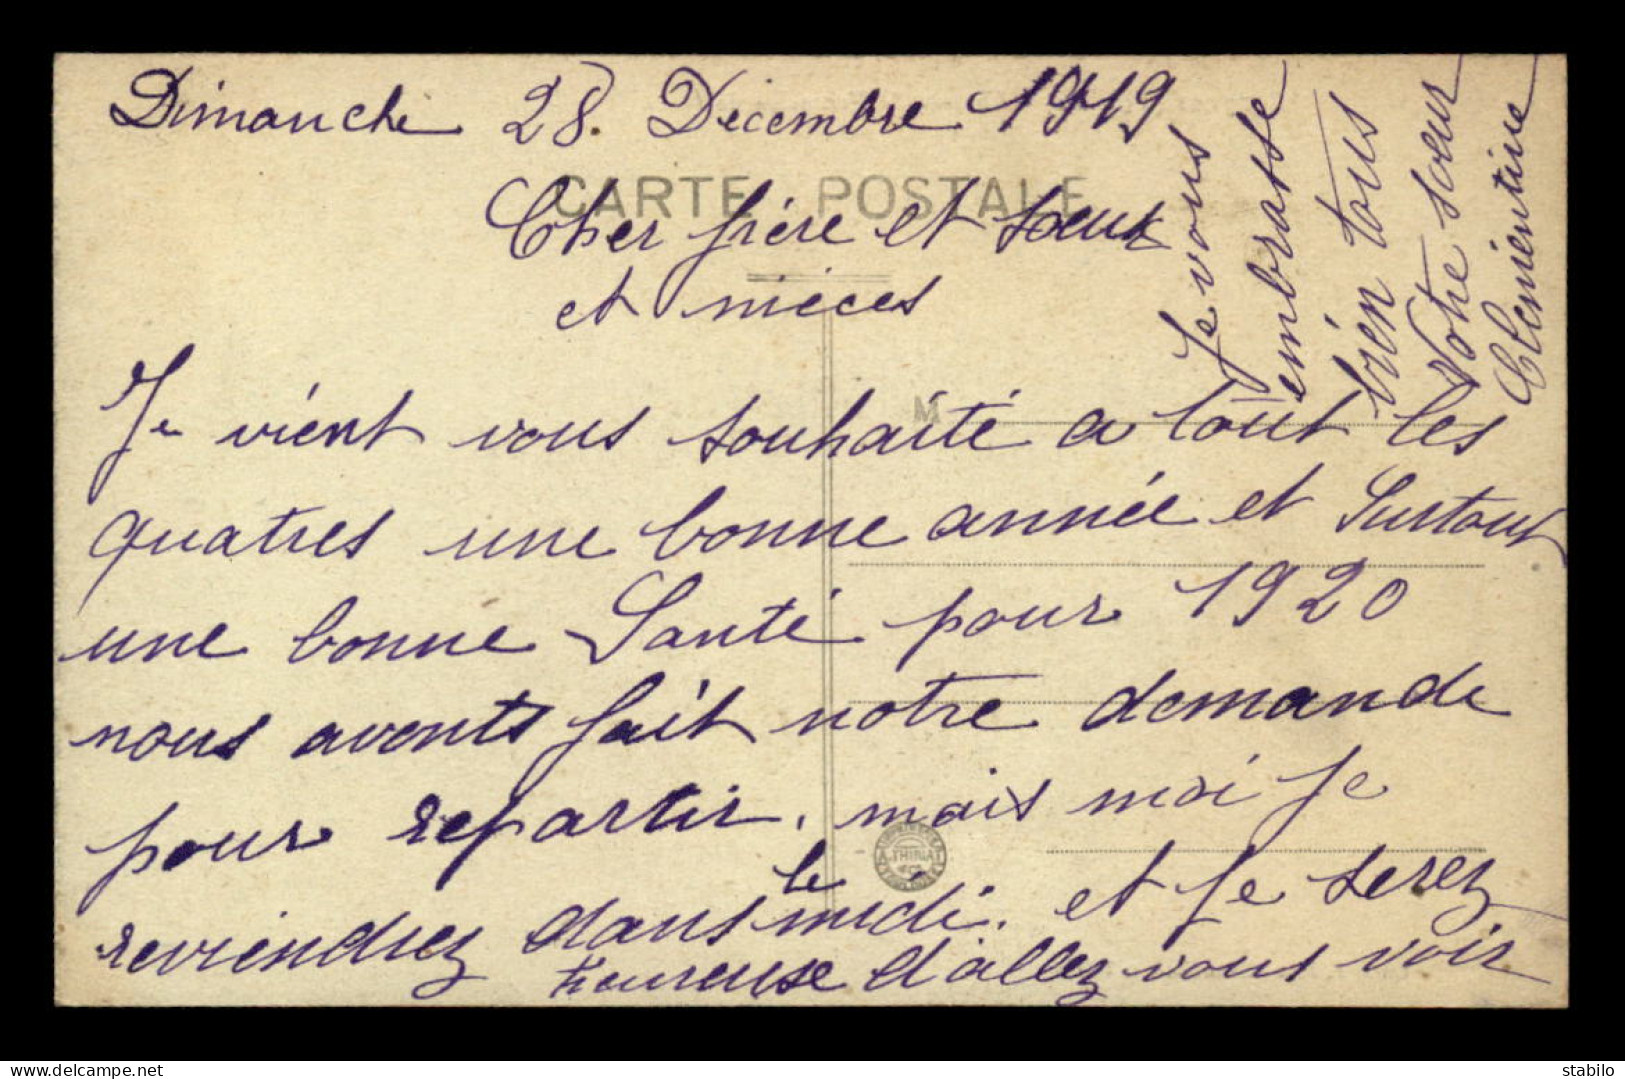 Dimanche 28. Décembre 1919
CARTE POSTALE
Cher frère et soeur
et nièces
M
Je vient vous souhaité a tout les
quatres une bonne année et surtout
une bonne Santé pour 1920
nous avents fait notre demande
pour repartir. mais moi je
reviendrez dans le midi. et je serez
heureuse d'allez vous voir
Je vous
embrasse
bien tous
Votre soeur
Clémentine
delcampe.net
stabilo